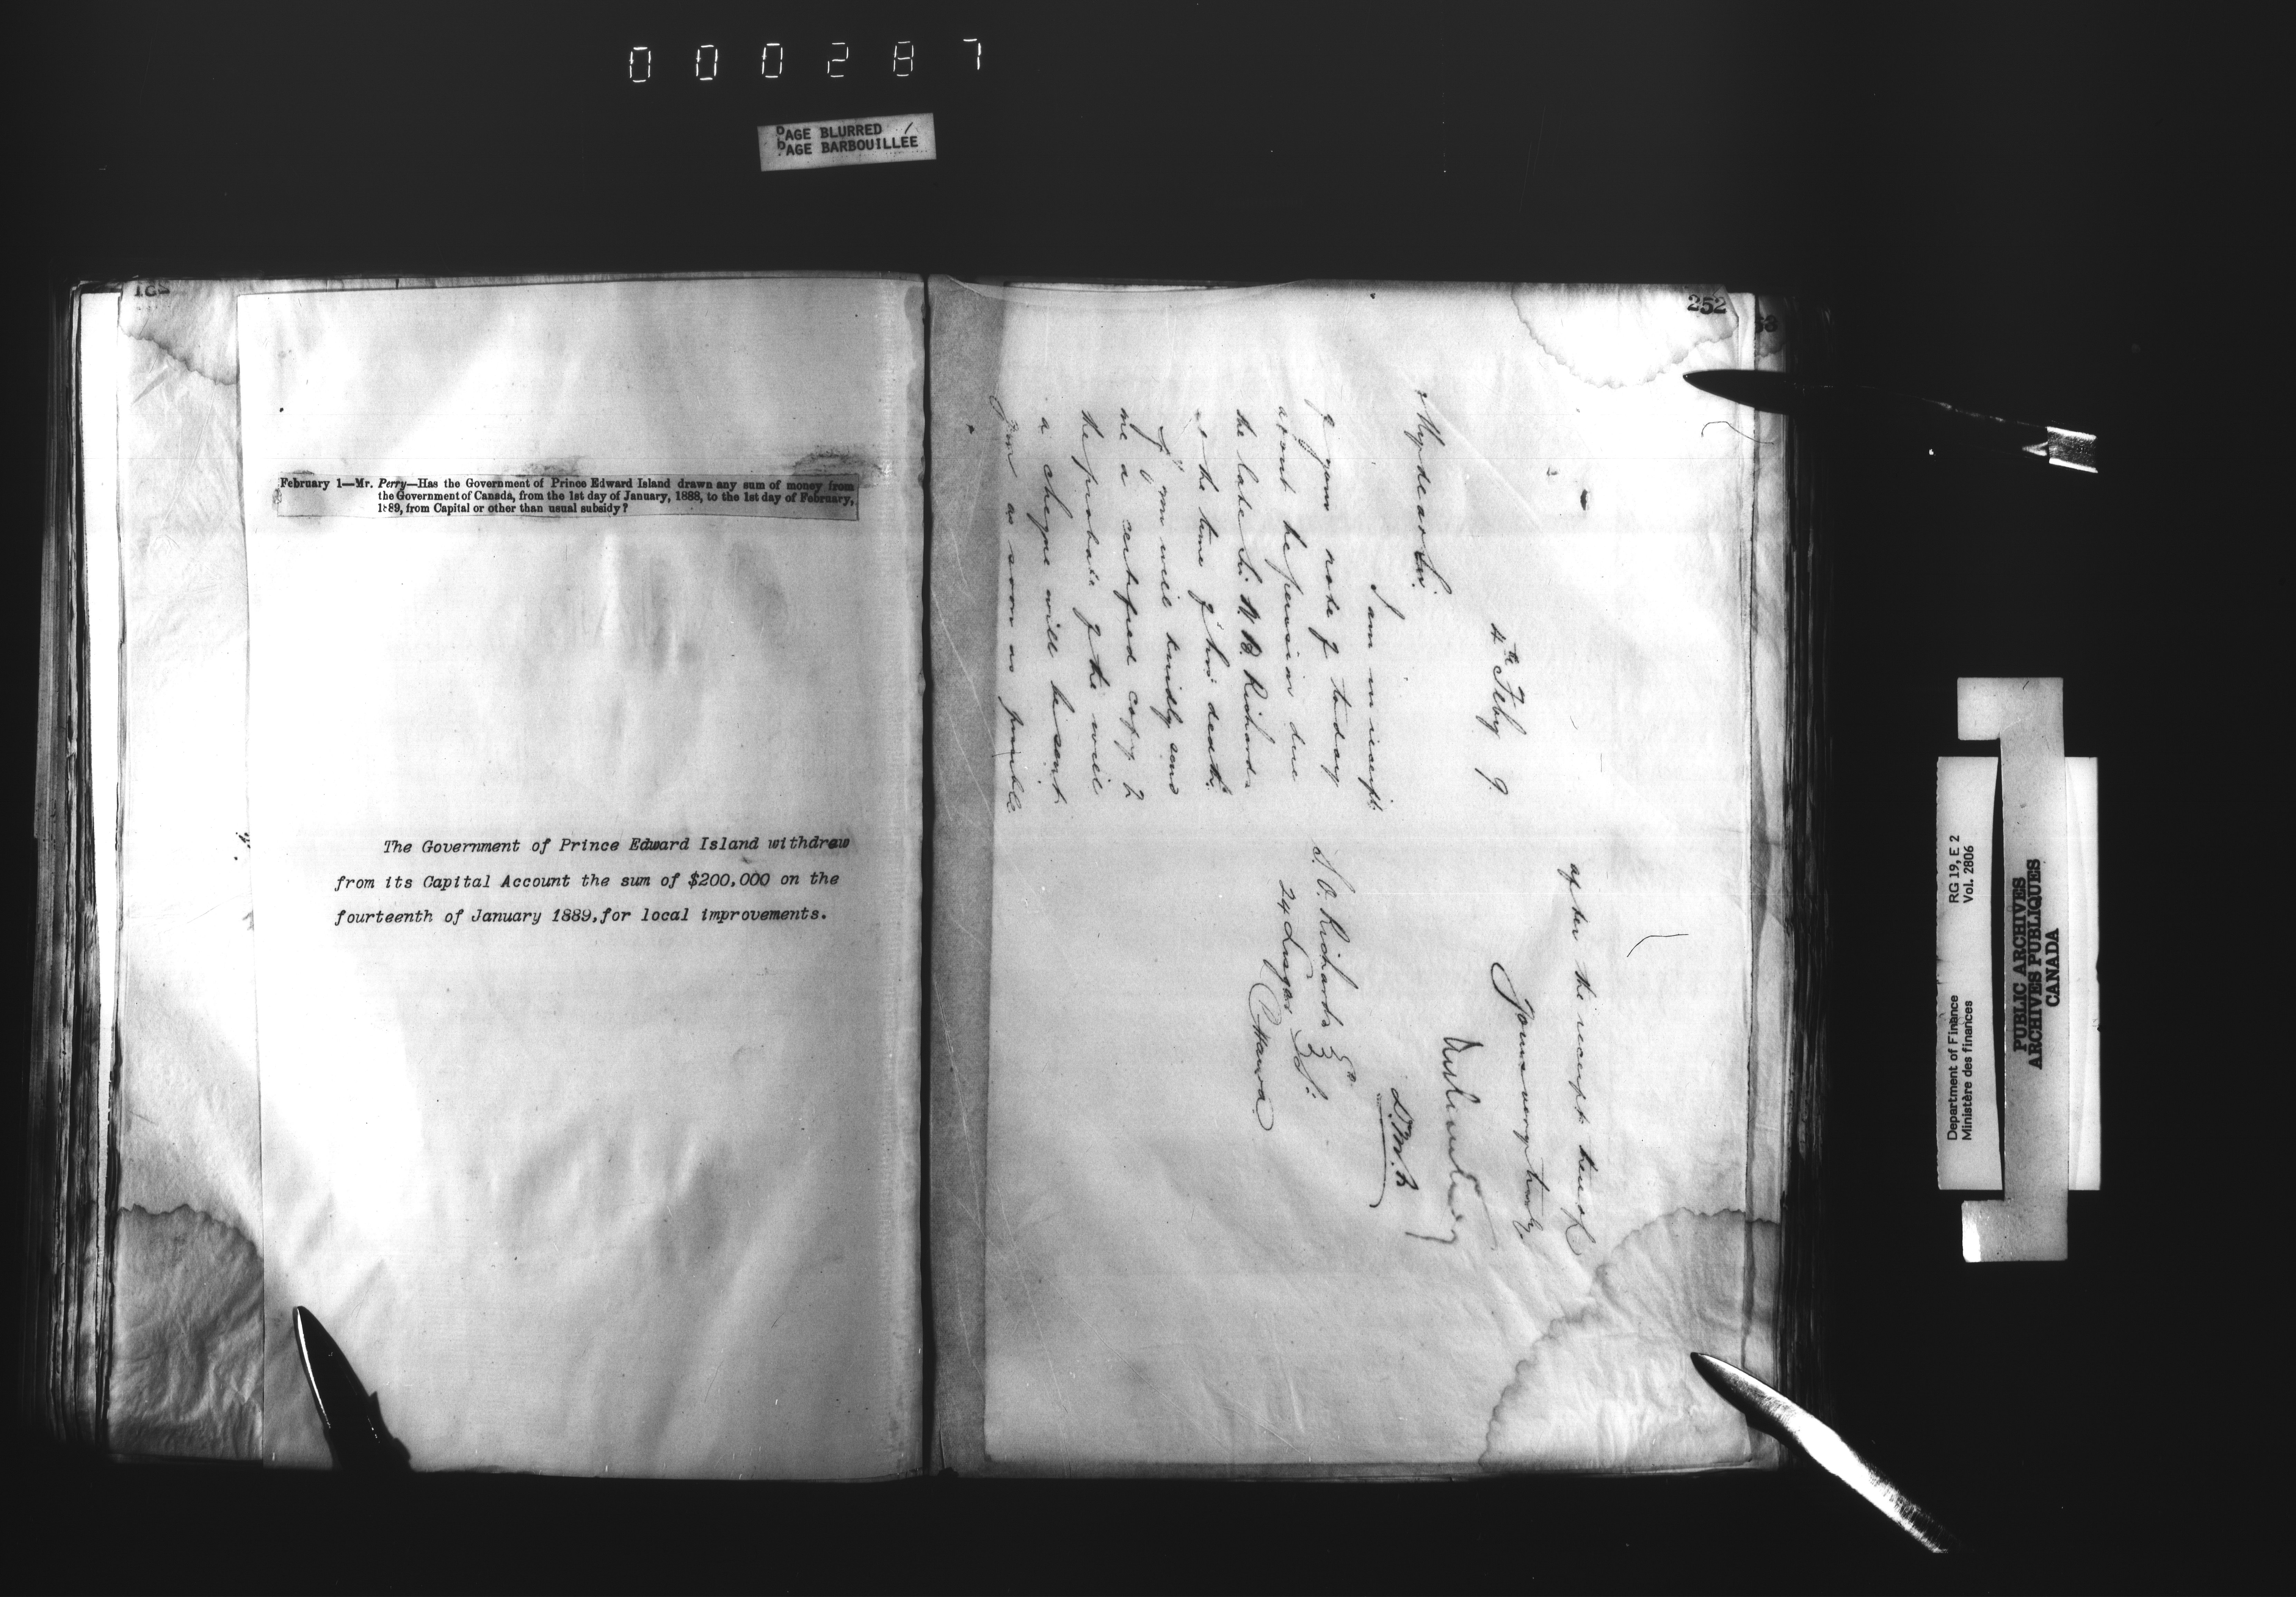 000287
PAGE BLURRED
PAGE BARBOUILLÉE
February 1—Mr. Perry—Has the Government of Prince Edward Island drawn any sum of money from
the Government of Canada, from the 1st day of January, 1888, to the 1st day of February,
1889, from Capital or other than usual subsidy?
The Government of Prince Edward Island withdrew
from its Capital Account the sum of $200,000 on the
fourteenth of January 1889,for local improvements.
252
4th Feby 9.
My dear Sir.
I am in receipt
of your note of today
about the pension due
the late Sir W. B. Richards
at the time of his death.
If you will kindly send
me a certified copy of
the probate of the will
a cheque will be sent
you as soon as possible
after the receipt thereof
Yours very truly
D.M.R.
S. O. Richards Esq
24 Lisgar St.
Ottawa
Department of Finance
Ministère des finances
RG 19, E 2
Vol. 2806
PUBLIC ARCHIVES
ARCHIVES PUBLIQUES
CANADA